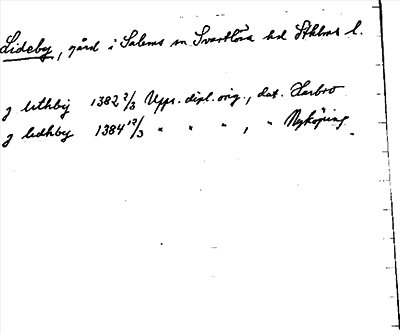 Lideby, gård i Salems sn Svartlösa hd Sthlms l.
J lithby 1382 2/3 Upps. dipl. orig., dat. Harbro
J ledhby 1384 12/3 " " " , " Nyköping.